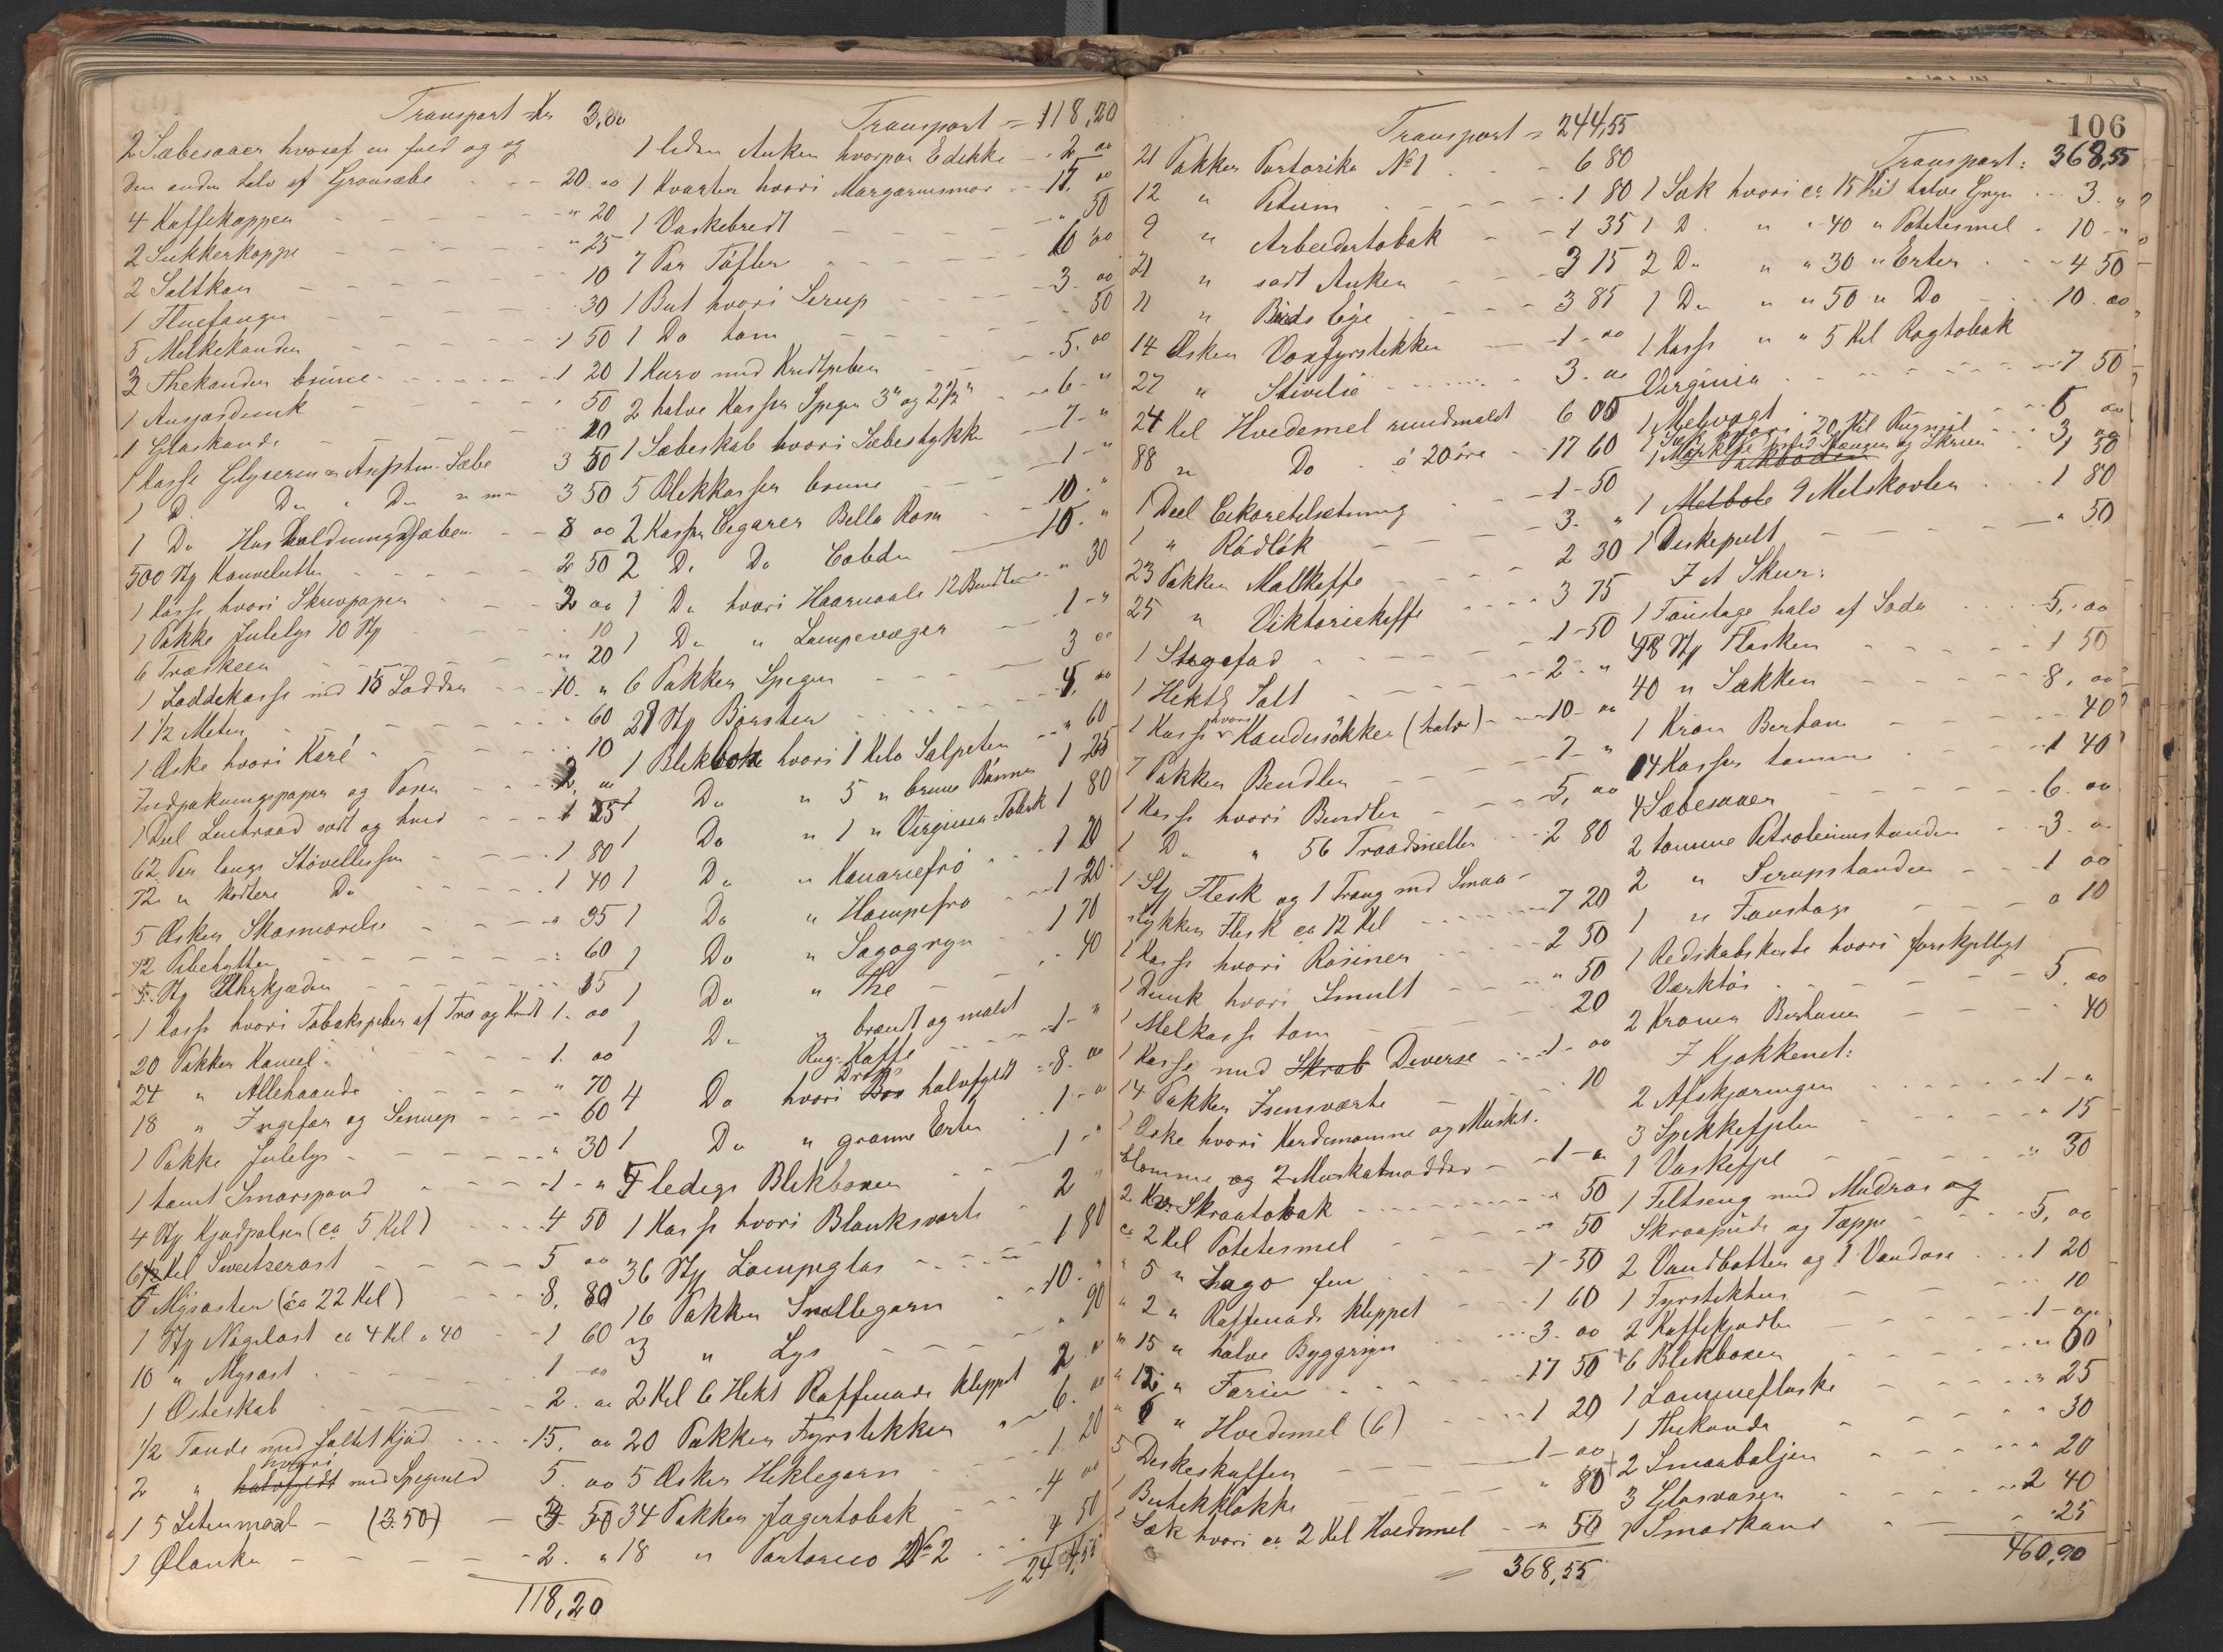 Transport Kr 3,00
2 Sæbesaaer hvoraf en fuld og og
den anden halv af Grønsæbe - - - 20. 00
4 Kaffekopper - - - " 20
2 Sukkerkoppe - - - " 25
2 Saltkar - - - 10
1 Fluefanger - - - 30
5 Melkekander - - - 1 50
3 Thekander brune - - - 1 20
1 Ansjosdunk - - - 50
1 Glaskande - - - 10
1 Kasse Glyserin og Sæbe 3 50
1 D. Do " Do 3 50
1 Do Husholdningssæber - - 8 00
500 Stk Konvelutter - - - 2 50
1 Kasse hvori Skrivpapir - - - 2 00
1 Pakke Julelys 10 Stk - - - 10
6 Træskeer - - - " 20
1 Loddekasse med 15 Lodder - - - 10. "
1 1/2 Meter - - - 60
1 Æske hvori Karé - - - 10
Indpakningspapir og Poser - - - 2. 00
1 Deel sort og hvid - - - 1 25
62 Par lange Støvelliser - - - 1 80
72 " kortere Do - - - 1 40
5 Æsker Skosmørelse - - - 35
12 Pibehytter - - - 60
5 Stk Uhrkjæder - - - 35
1 Kasse hvori Tobakspiber af Træ og Kridt 1. 00
20 Pakker Kaneel - - - 1. 00
24 " Allehaande - - - " 70
18 " Ingefær og Sennep - - - 60
1 Pakke Julelys - - - " 30
1 tomt Smørspand - - - 1 - "
4 Stk Kjødpølser (ca 5 Kil) - - - 4 50
6 1/2 Kil Sweitzerost - - - 5 00
5 Mysoster (ca 22 Kil) - - - 8, 80
1 Stk Nøgelost ca 4 Kil a 40 - - 1 60
10 " Mysost - - - 1 - 00
1 Osteskab - - - 2. 00
1/2 Tønde med saltet Kjød - - - 15. 00
2 " hvori halvfyldt med Spegesild 5. 00
1 5 Litermaal - (3.50) - 3 50
1 Ølanker - - - 2. "
118,20
Transport = 118,20
1 liden Anker hvorpaa Edikke - - 2 00
1 Kvarter hvori Margarinsmør - - 17. 00
1 Vaskebredt - - - " 50
7 Par Tøfler - - - 10 00
1 But hvori Sirup - - - 3. 00
1 Do tom - - - 50
1 Kurv med Kridtpiber - - - 5. 00
2 halve Kasser Spiger 3" og 2 1/2" - - 6 - "
1 Sæbeskab hvori Sæbestykke - - 7 - "
5 Blikkasser brune - - - 1 - "
2 Kasser Cigarer Bella Rosa - - 10. "
2 D. Do Cobden - - 10. "
1 Do hvori Haarnaale 12 Bundter - - " 30
1 Do " Lampevæger - - - 1 - "
6 Pakker Spiger - - - 3 00
21 Stk Børster - - - 4. 00
1 Blikboks hvori 1 Kilo Salpeter - - " 60
1 Do " 5 " brune Bønner 1 25
1 Do " 1 " Virginia Tobak 1 80
1 Do " Kanariefrø - - - 1 20
1 Do " Hampefrø - - - 1 20
1 Do " Sagogryn - - - 1 70
1 Do " The - - - 40
1 Do " brændt og malet
Rug-Kaffe - - - 1 - "
4 Do hvori Drops halvfyldt - - 8. 00
1 Do " grønne Erter - - 1 - "
5 ledige Blikboxer - - - 1 - "
1 Kasse hvori Blanksværte - - 2 "
36 Stk Lampeglas - - - 1 80
16 Pakker Snellegarn - - - 10. "
3 " Lys - - - " 90
2 Kil 6 Hekt Raffinade kleppet 2 "
20 Pakker Fyrstikker - - 6. 00
5 Æsker Heklegarn - - - 1 20
34 Pakker Jagertobak - - - 4 00
18 " Portorico No 2 - - - 4 50
244,55
Transport = 244,55
21 Pakker Portoriko No 1 - - 6 80
12 " Petum - - - 1 80
9 " Arbeidertobak - - 1 35
21 " sort Anker - - 3 15
11 " Eje - - - 3 85
14 Æsker Voxfyrstikker - - 1 - 00
27 " Stivelse - - - 3. 00
24 Kil Hvedemel rundmalet 6 00
88 " Do á 20 øre - - 17 60
1 Deel - - 1 - 50
1 " Rødløk - - - 3. "
23 Pakker Maltkaffe - - - 2 30
25 " Viktoriakaffe - - - 3 75
1 Stegefad - - - 1 - 50
1 Hektl Salt - - - 2 - "
1 Kasse hvori Kandissukker (halv) - - 10 - 00
7 Pakker Bendler - - - 7 - "
1 Kasse hvori Bendler - - - 5, 00
1 Do " 56 Traadsneller - - - 2 80
1 Stk Flesk og 1 Traug med Smaa-
stykker Flesk ca 12 Kil - - - 7 20
1 Kasse hvori Rosiner - - - 2 50
1 Dunk hvori Smult - - - " 50
1 Melkasse tom - - - 20
1 Kasse med Skrab Diverse - - - 1 - 00
14 Pakker Isensværte - - - 10
1 Æske hvori Kardemomme og Muskat-
blomme og 2 Muskatnødder - - 1 - 00
2 Kv. Skraatobak - - - 50
ca 2 Kil Potetesmel - - - " 50
" 5 " Sago fin - - - 1 - 50
" 2 " Raffinade kleppet - - - 1 60
" 15 " halve Byggryn - - - 3. 00
" 12 " Farin - - - 17 50
" 6 " Hvedemel (6) - - - 1 20
5 Deskeskuffer - - - 1 - 00
1 Butikklokke - - - " 80
1 Sæk hvori ca 2 Kil Hvedemel - - " 50
368,55
106
Transport: 368,55
1 Sæk hvori ca 15 Kil halve Gryn - - - 3. "
1 D. " " 40 " Potetesmel - 10 - "
2 Do " " 30 " Erter - - - 4 50
1 Do " " 50 " Do - - 10. 00
1 Kasse " " 5 Kil Ragtobak
Virginia - - - 7 50
1 Melvægt - - - 6 00
1 Sæk hvori 20 Kil Rugmel - - 3 00
1 og Skruer - - 1 50
1 Melbole 9 Melskovler - - - 1 80
1 Deskepult - - - " 50
I et Skur:
1 Foustage halv af Soda - - - 5,. 00
98 Stk Flasker - - - 1 50
40 " Sækker - - - 8, 00
1 Kran Bertram - - - 40
14 Kasser tomme - - - 1 40
4 Sæbesaaer - - - 6. 00
2 tomme Petroleumstønder - - 3. 00
2 " Sirupstønder - - 1 00
1 " Foustage - - - " 10
1 Redskabskiste hvori forskjelligt
Værktøi - - - 5. 00
2 Kraner - - - 40
I Kjøkkenet:
2 Afskjæringer - - - 1 - "
3 Spekkefjeler - - - " 15
1 Vaskefjel - - - " 30
1 Feltseng med Madras og
Skraapude og Tæppe - - - 5, 00
2 Vandbøtter og 1 Vandøse - - - 1 20
1 Fyrstikhus - - - 10
2 Kaffekjedler - - - 1 - 00
6 Blikboxer - - - " 60
1 Lommeflaske - - - " 25
1 Thekande - - - " 30
2 Smaabaljer - - - " 20
3 Glasvaser - - - 2 40
1 Smørkand - - - " 25
460,90